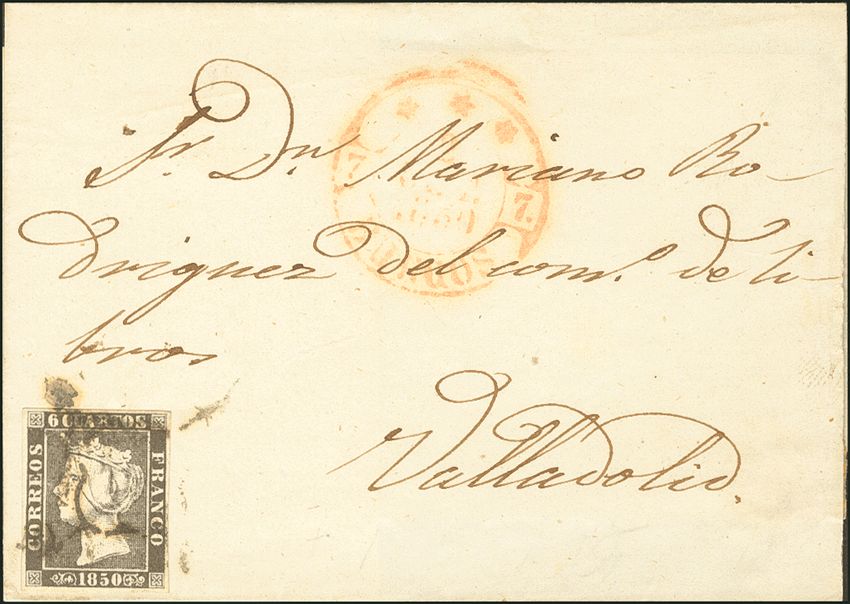 Sr. Dn. Mariano Ro-
driguez del com.º de li-
bros
Valladolid.
6 CUARTOS
CORREOS
FRANCO
1850
BURGOS